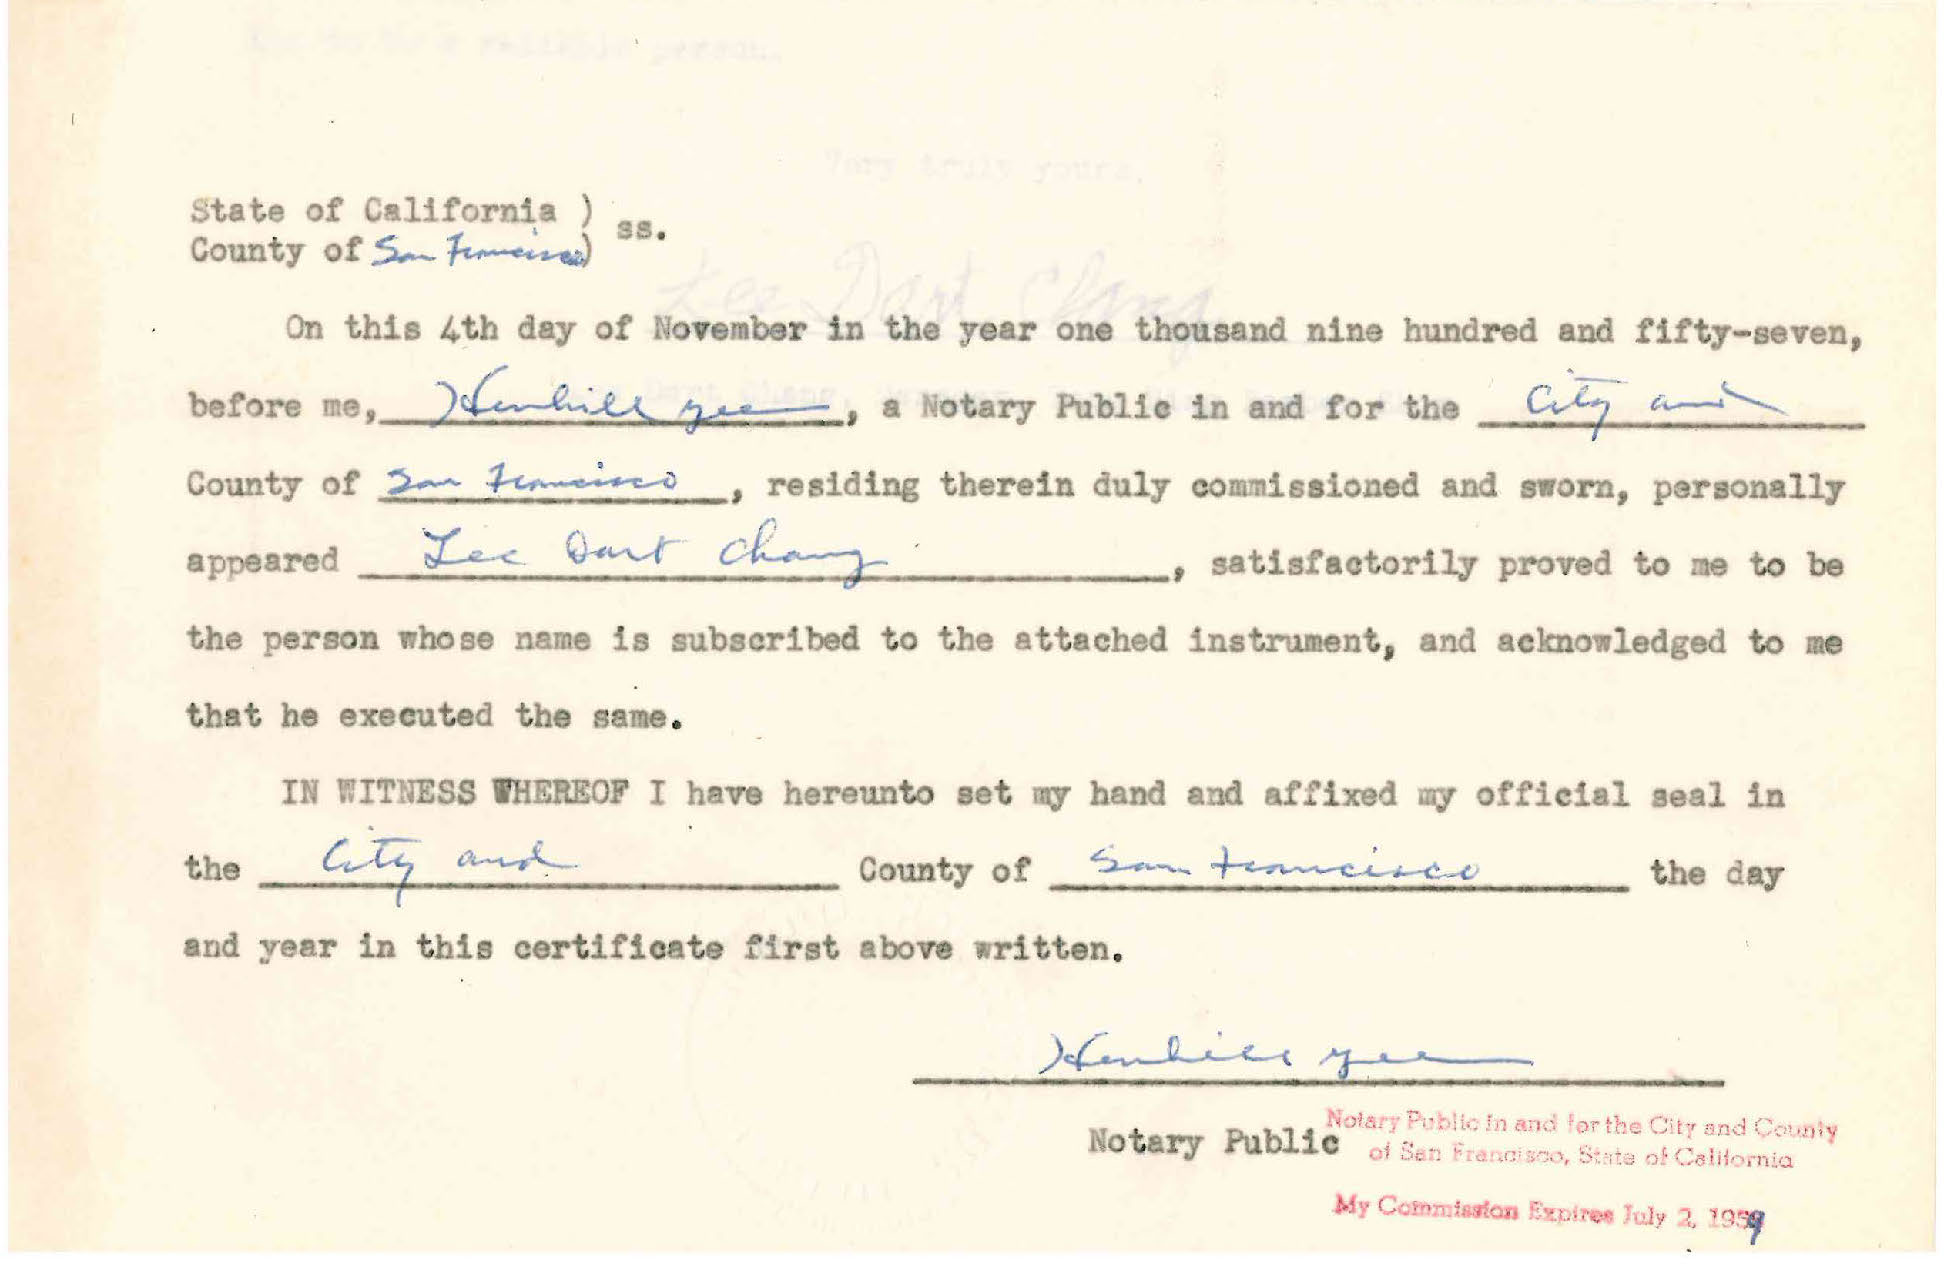 Very truly yours,
State of California )
County of San Francisco) ss.
Lee Dart Chang
On this 4th day of November in the year one thousand nine hundred and fifty-seven,
before me, Henhill Yee, a Notary Public in and for the City and
County of San Francisco, residing therein duly commissioned and sworn, personally
appeared Lee Dart Chang, satisfactorily proved to me to be
the person whose name is subscribed to the attached instrument, and acknowledged to me
that he executed the same.
IN WITNESS WHEREOF I have hereunto set my hand and affixed my official seal in
the City and County of San Francisco the day
and year in this certificate first above written.
Henhill Yee
Notary Public
Notary Public in and for the City and County
of San Francisco, State of California
My Commission Expires July 2, 1959